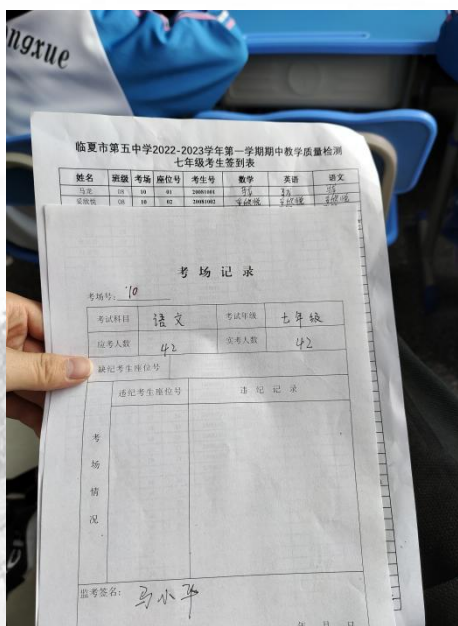 ongxue
临夏市第五中学2022-2023学年第一学期期中教学质量检测
七年级考生签到表
姓名 班级 考场 座位号 考生号 数学 英语 语文
马龙 08 10 01 20081001
08 10 02 20081002
考场记录
考场号: 10
考试科目 语文 考试年级 七年级
应考人数 42 实考人数 42
缺纪考生座位号
违纪考生座位号 违纪记录
考场情况
监考签名: 马小华
年 月 日